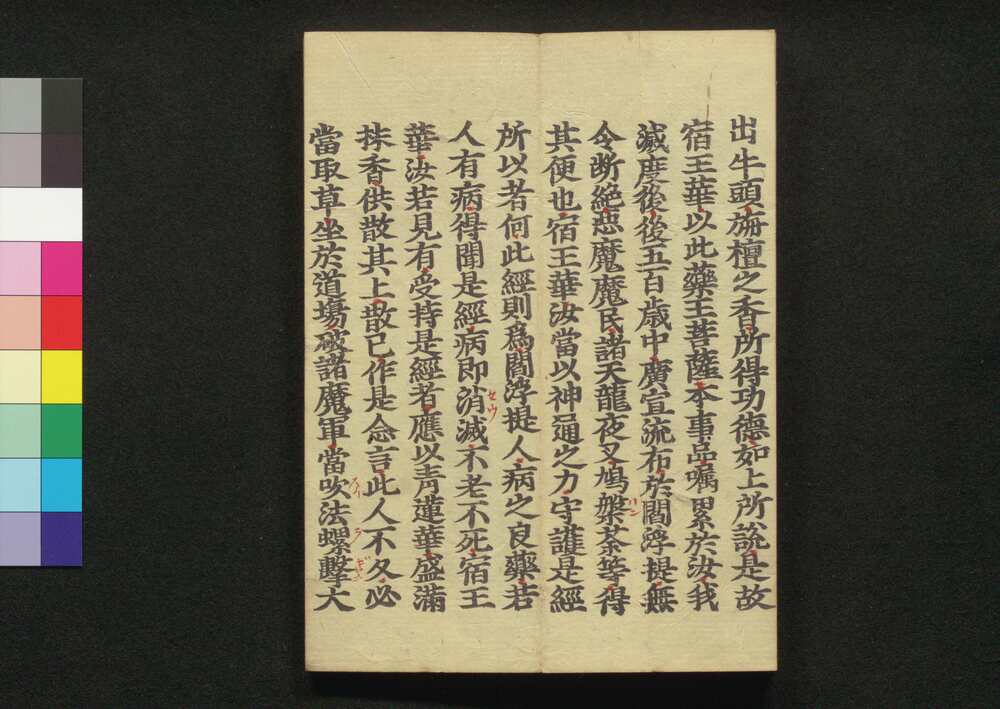 出牛頭旃檀之香所得功德如上所說是故
宿王華以此藥王菩薩本事品囑累於汝我
滅度後後五百歲中廣宣流布於閻浮提無
令斷絕惡魔魔民諸天龍夜叉鳩槃茶等得
其便也宿王華汝當以神通之力守護是經
所以者何此經則為閻浮提人病之良藥若
人有病得聞是經病即消滅不老不死宿王
華汝若見有受持是經者應以青蓮華盛滿
抹香供散其上散已作是念言此人不久必
當取草坐於道場破諸魔軍當吹法螺擊大